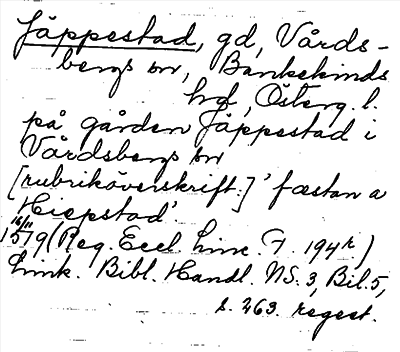 Jäppestad, gd, Vårds-
bergs sn, Bankekinds
hd, Österg. l.
på gården Jäppestad i
Vårdsbergs sn
[rubriköverskrift:] 'fæstan a
Hiepstad'.
16/11
1519 (Reg. Eccl. Linc. F. 194r)
Link. Bibl. Handl. NS. 3, Bil. 5,
s. 263. regest.